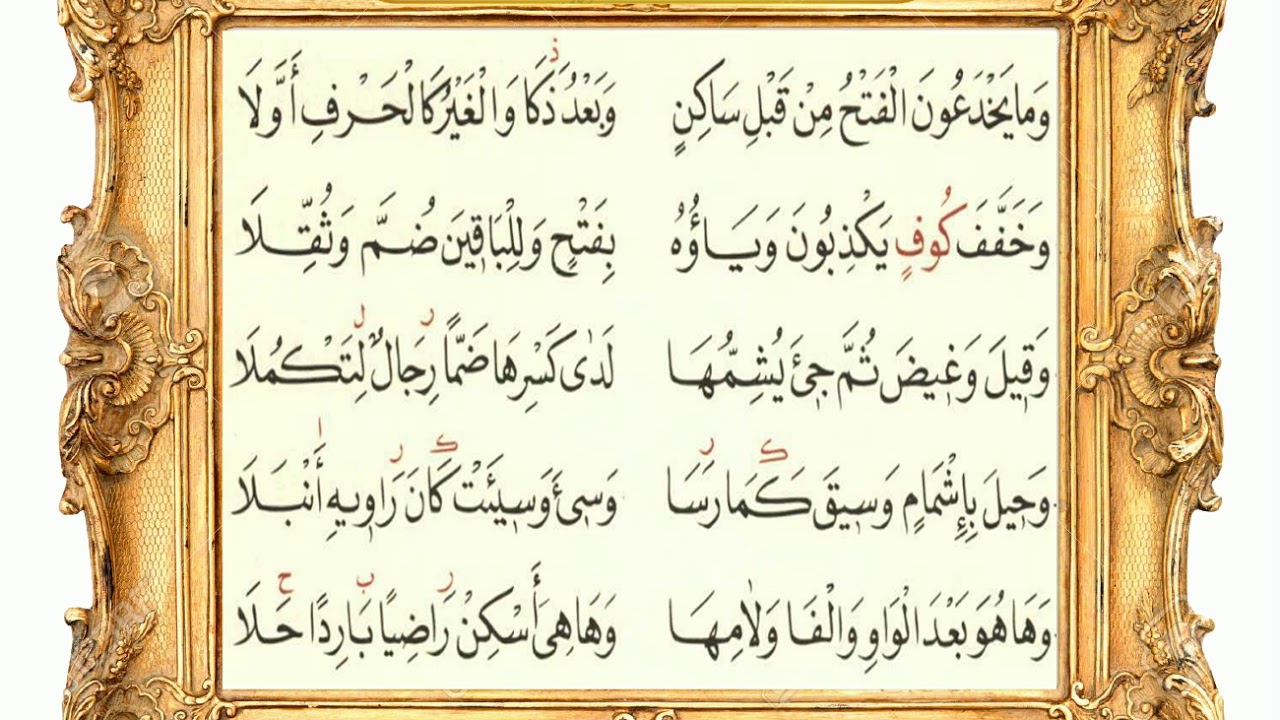 وَمَا يَخْدَعُونَ الْفَتْحُ مِنْ قَبْلِ سَاكِنٍ وَبَعْدُ ذَكَا وَالْغَيْرُ كَالْحَرْفِ أَوَّلَا
وَخَفَّفَ كُوفٍ يَكْذِبُونَ وَيَاؤُهُ بِفَتْحٍ وَلِلْبَاقِينَ ضُمَّ وَثُقِّلَا
وَقِيلَ وَغِيضَ ثُمَّ جِئَ يُشِمُّهَا لَدَى كَسْرِهَا ضَمًّا رِجَالٌ لِتَكْمُلَا
وَحِيلَ بِإِشْمَامٍ وَسِيقَ كَمَا رَسَا وَسِئَ وَسِيئَتْ كَانَ رَاوِيهِ أَنْبَلَا
وَهَا هُوَ بَعْدَ الْوَاوِ وَالْفَا وَلَامِهَا وَهَا هِيَ أَسْكِنْ رَاضِيًا بَارِدًا حَلَا